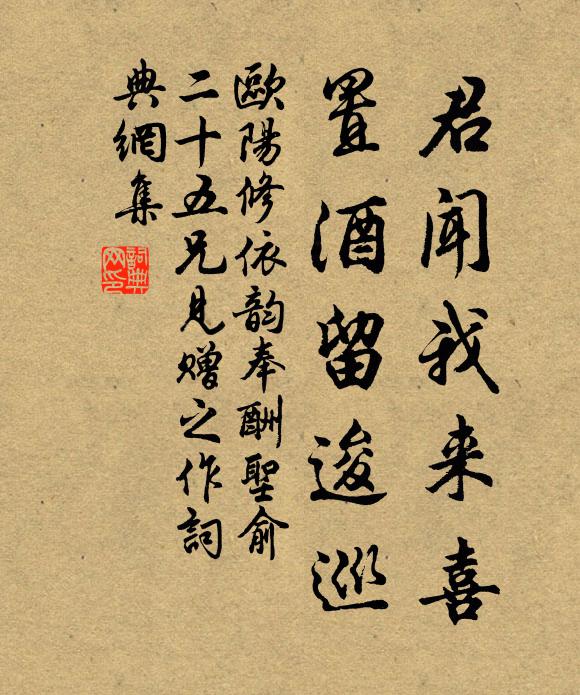 君闻我来喜
置酒留逡巡
歐陽修依韵奉酬聖俞
二十五兄見贈之作詞
典網集
詞典
网印